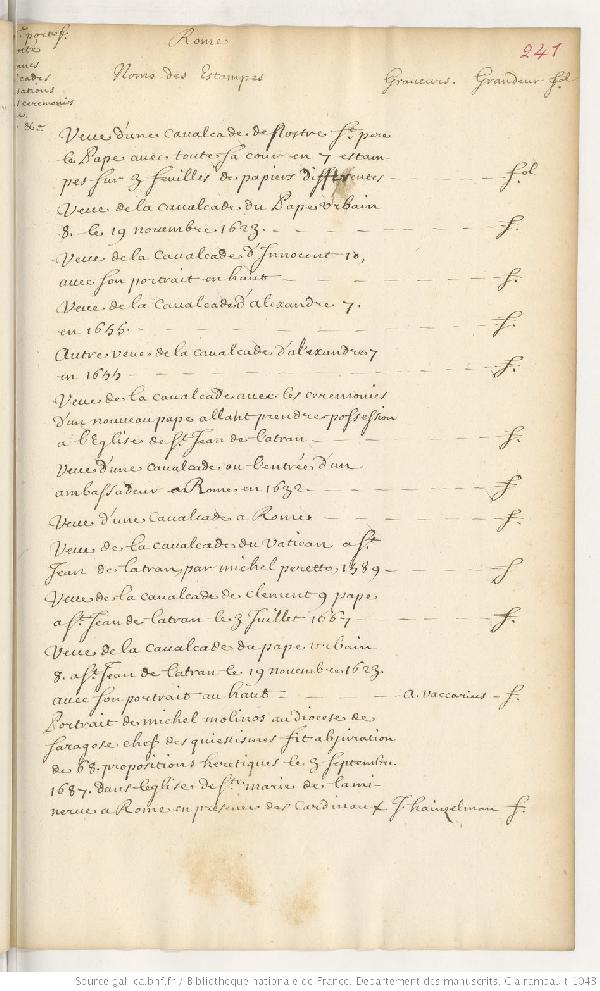 Rome
241
Noms des Estampes Graveurs. Grandeur fol
Veue d'une Cavalcade de Nostre St. pere
le Pape avec toute sa cour en 7 estam-
pes sur 3 feuilles de papiers differentes fol
Veue de la cavalcade du Pape Urbain
8. le 19 novembre 1623. f.
Veue de la Cavalcade d'Innocent 10,
avec son portrait en haut f.
Veue de la Cavalcade d'alexandre 7.
en 1655. f.
Autre veue de la cavalcade d'alexandre 7
en 1655 f.
Veue de la cavalcade avec les ceremonies
d'un nouveau pape allant prendre possession
a l'Eglise de St. Jean de latran f.
Veue d'une cavalcade ou l'entrée d'un
ambassadeur a Rome en 1632. f
Veue d'une Cavalcade a Rome f.
Veue de la cavalcade du vatican a St.
Jean de latran, par michel peretto, 1589 f
Veue de la cavalcade de Clement 9 pape
a St. Jean de latran le 3 Juillet 1667 f.
Veue de la Cavalcade du pape urbain
8. a St. Jean de latran le 19 novembre 1623.
avec son portrait au haut a. vaccarius f.
Portrait de michel molinos au diocese de
saragose chef des quietismes fit abjuration
de 68. propositions heretiques le 3 septembre
1687. dans leglise de Ste. marie de la mi-
nerve a Rome en presence des Cardinaux J. hainzelman f.
Source gallica.bnf.fr / Bibliothèque nationale de France. Département des manuscrits. Clairambault 1043